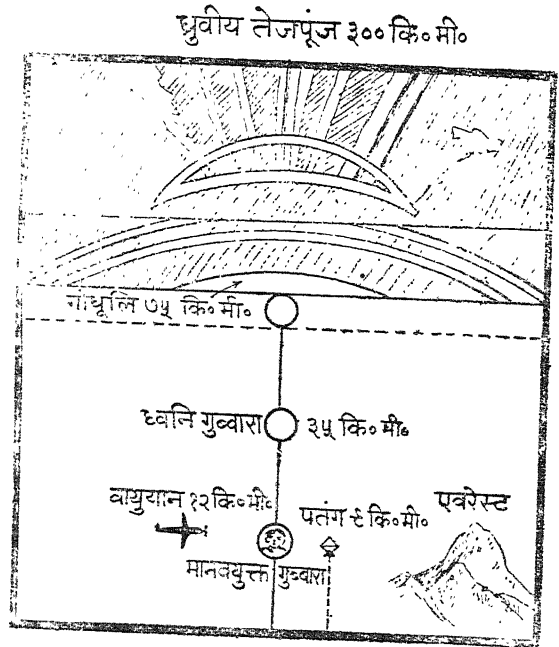 ध्रुवीय तेजपूंज ३०० कि॰ मी॰
गोधूलि ७५ कि॰ मी॰
ध्वनि गुब्बारा ३५ कि॰ मी॰
वायुयान १२ कि॰ मी॰
पतंग ९ कि॰ मी॰
एवरेस्ट
मानवयुक्त गुब्बारा